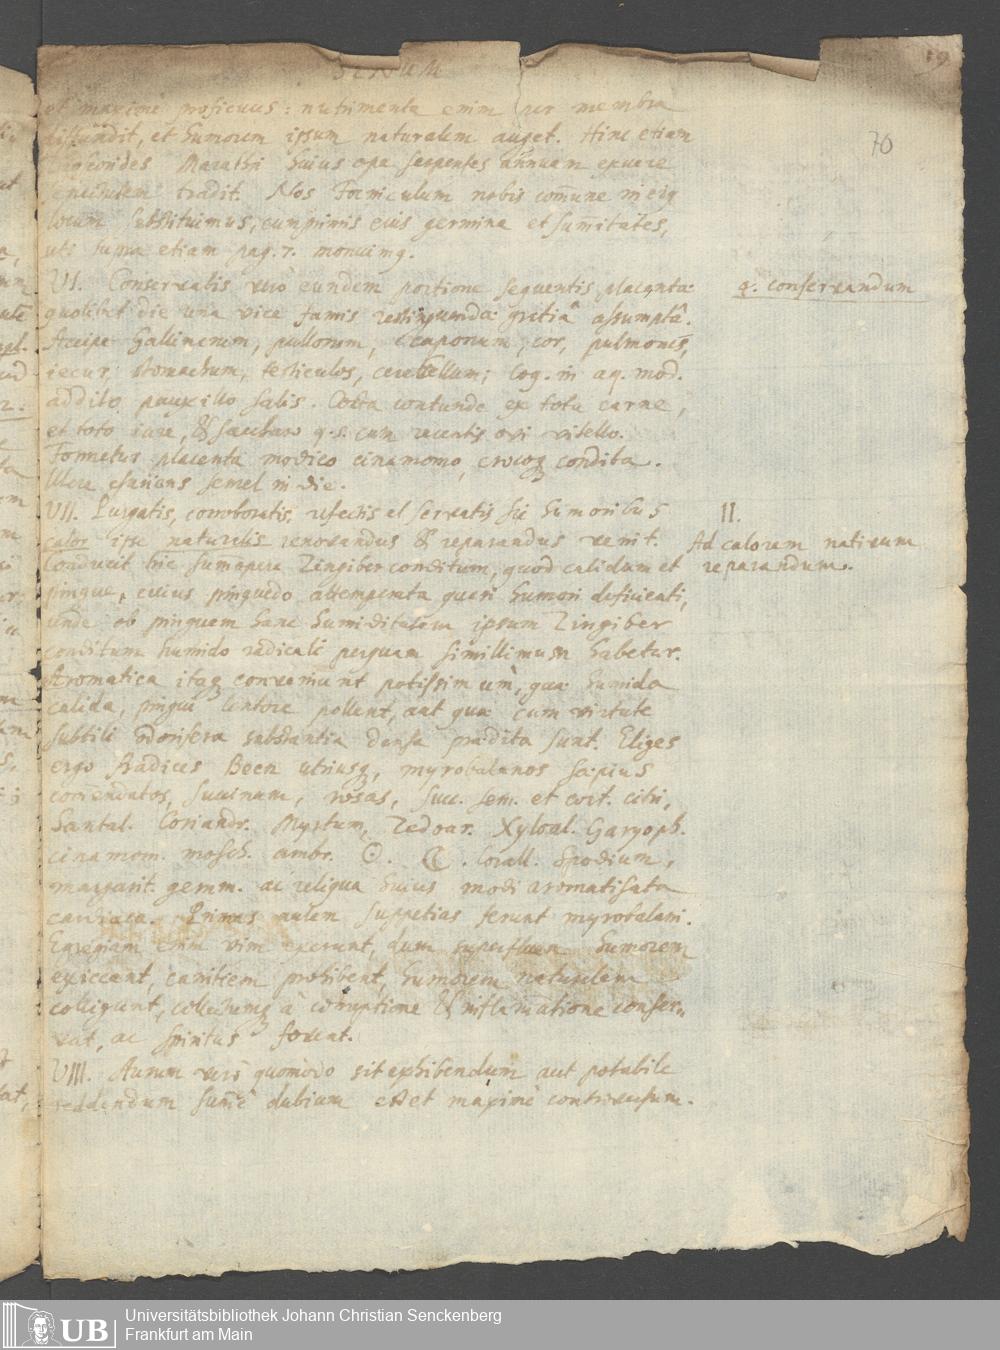 SENUM
19
70
et maximè proficuus: nutrimenta enim per membra
diffundit, et humorem ipsum naturalem auget. Hinc etiam
Marathri huius ope serpentes annuam exuere
senectutem tradit. Nos Foeniculum nobis com̄une in eiq
locum substituimus, cumprimis eius germina et sum̄itates,
uti supra etiam pag. 7. monuimq.
VI. Conservatis verò eundem portione sequentis placentæ
quolibet die una vice famis restinguendæ gratiâ assumptâ.
Accipe Gallinarum, pullorum, caponum, cor, pulmones,
iecur, stomachum, testiculos, cerebellum; coq. in aq. mod.
addito pauxillo salis. Cocta contunde ex tota carne,
et toto iure, & saccharo q.s. cum recentis ovi vitello.
Formetur placenta modico cinamomo, crocoq condita.
esuriens semel in die.
q. conservandum
VII. Purgatis, corroboratis, refectis et servatis sic humoribus
calor ipse naturalis renovandus & reparandus venit.
Conducit hic summopere Zingiber conditum, quod calidum et
pingue, cuius pinguedo attemperata quasi humori deficienti,
unde ob pinguem hanc humiditatem ipsum Zingiber
conditum humido radicali perquam simillimum habetur.
II.
Ad calorem nativum
reparandum.
Aromatica itaq conveniunt potissimùm, quæ humida
calida, pingui lentore pollent, aut quæ cum virtute
subtili odorifera substantia densa prædita sunt. Eliges
ergo Radices Been utriusq, myrobalanos sæpius
com̄endatos, succinum, rosas, succ. sem. et cort. citri,
Santal. Coriandr. Myrtum, Zedoar. Xyloal. Garyoph.
cinamom. mosch. ambr. ☉. ☾. Corall. Spodium,
margarit. gemm. ac reliqua huius modi aromatisata
cardiaca. Primas autem suppetias ferunt myrobalani.
Egregiam enim vim exerunt, dum superfluum humorem
exiccant, canitiem prohibent, humorem naturalem
colligunt, collectumq à corruptione & inflam̄atione conser-
vat, ac spiritus fovent.
VIII. Aurum verò quomodo sit exhibendum aut potabile
reddendum sum̄e dubium est et maximè controversum.
Universitätsbibliothek Johann Christian Senckenberg
Frankfurt am Main
UB